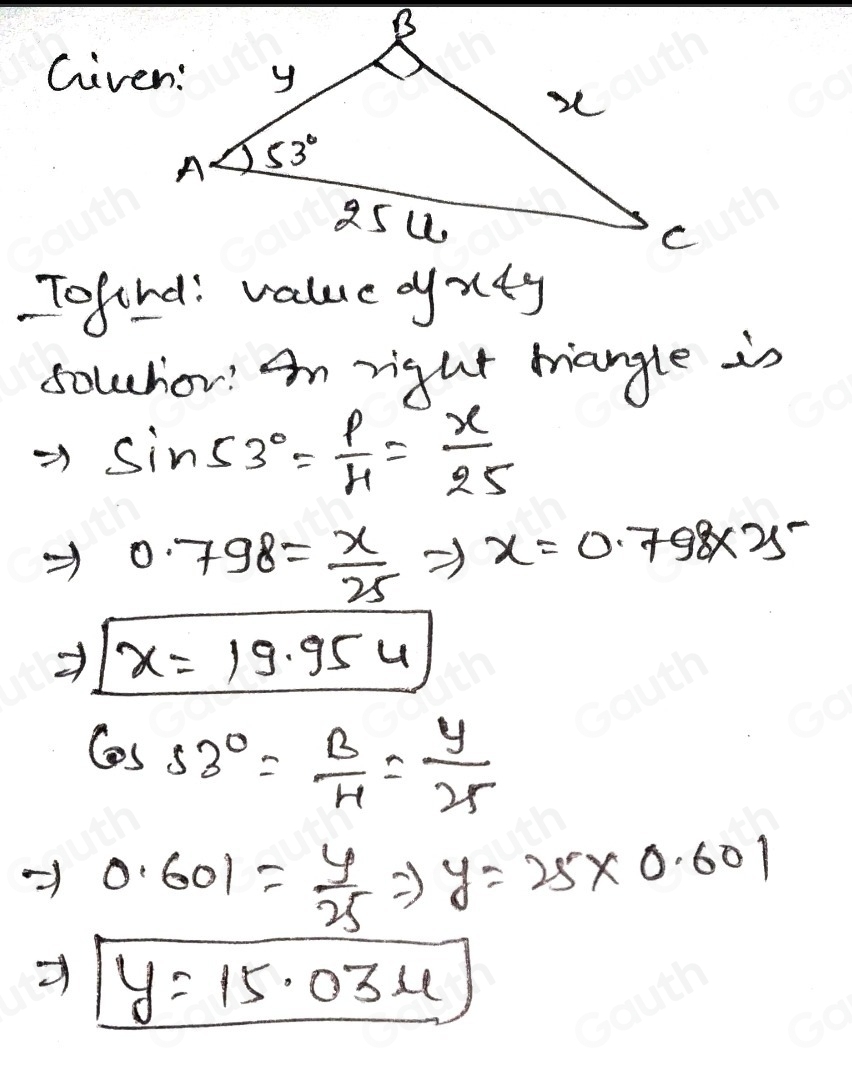 Given:
B
y
x
A
53°
25 u
C
To find: value of x & y
solution: In right triangle is
⇒ Sin 53° = P/H = x/25
⇒ 0.798 = x/25 ⇒ x = 0.798 × 25
⇒ x = 19.95 u
Cos 53° = B/H = y/25
⇒ 0.601 = y/25 ⇒ y = 25 × 0.601
⇒ y = 15.03 u
Gauth